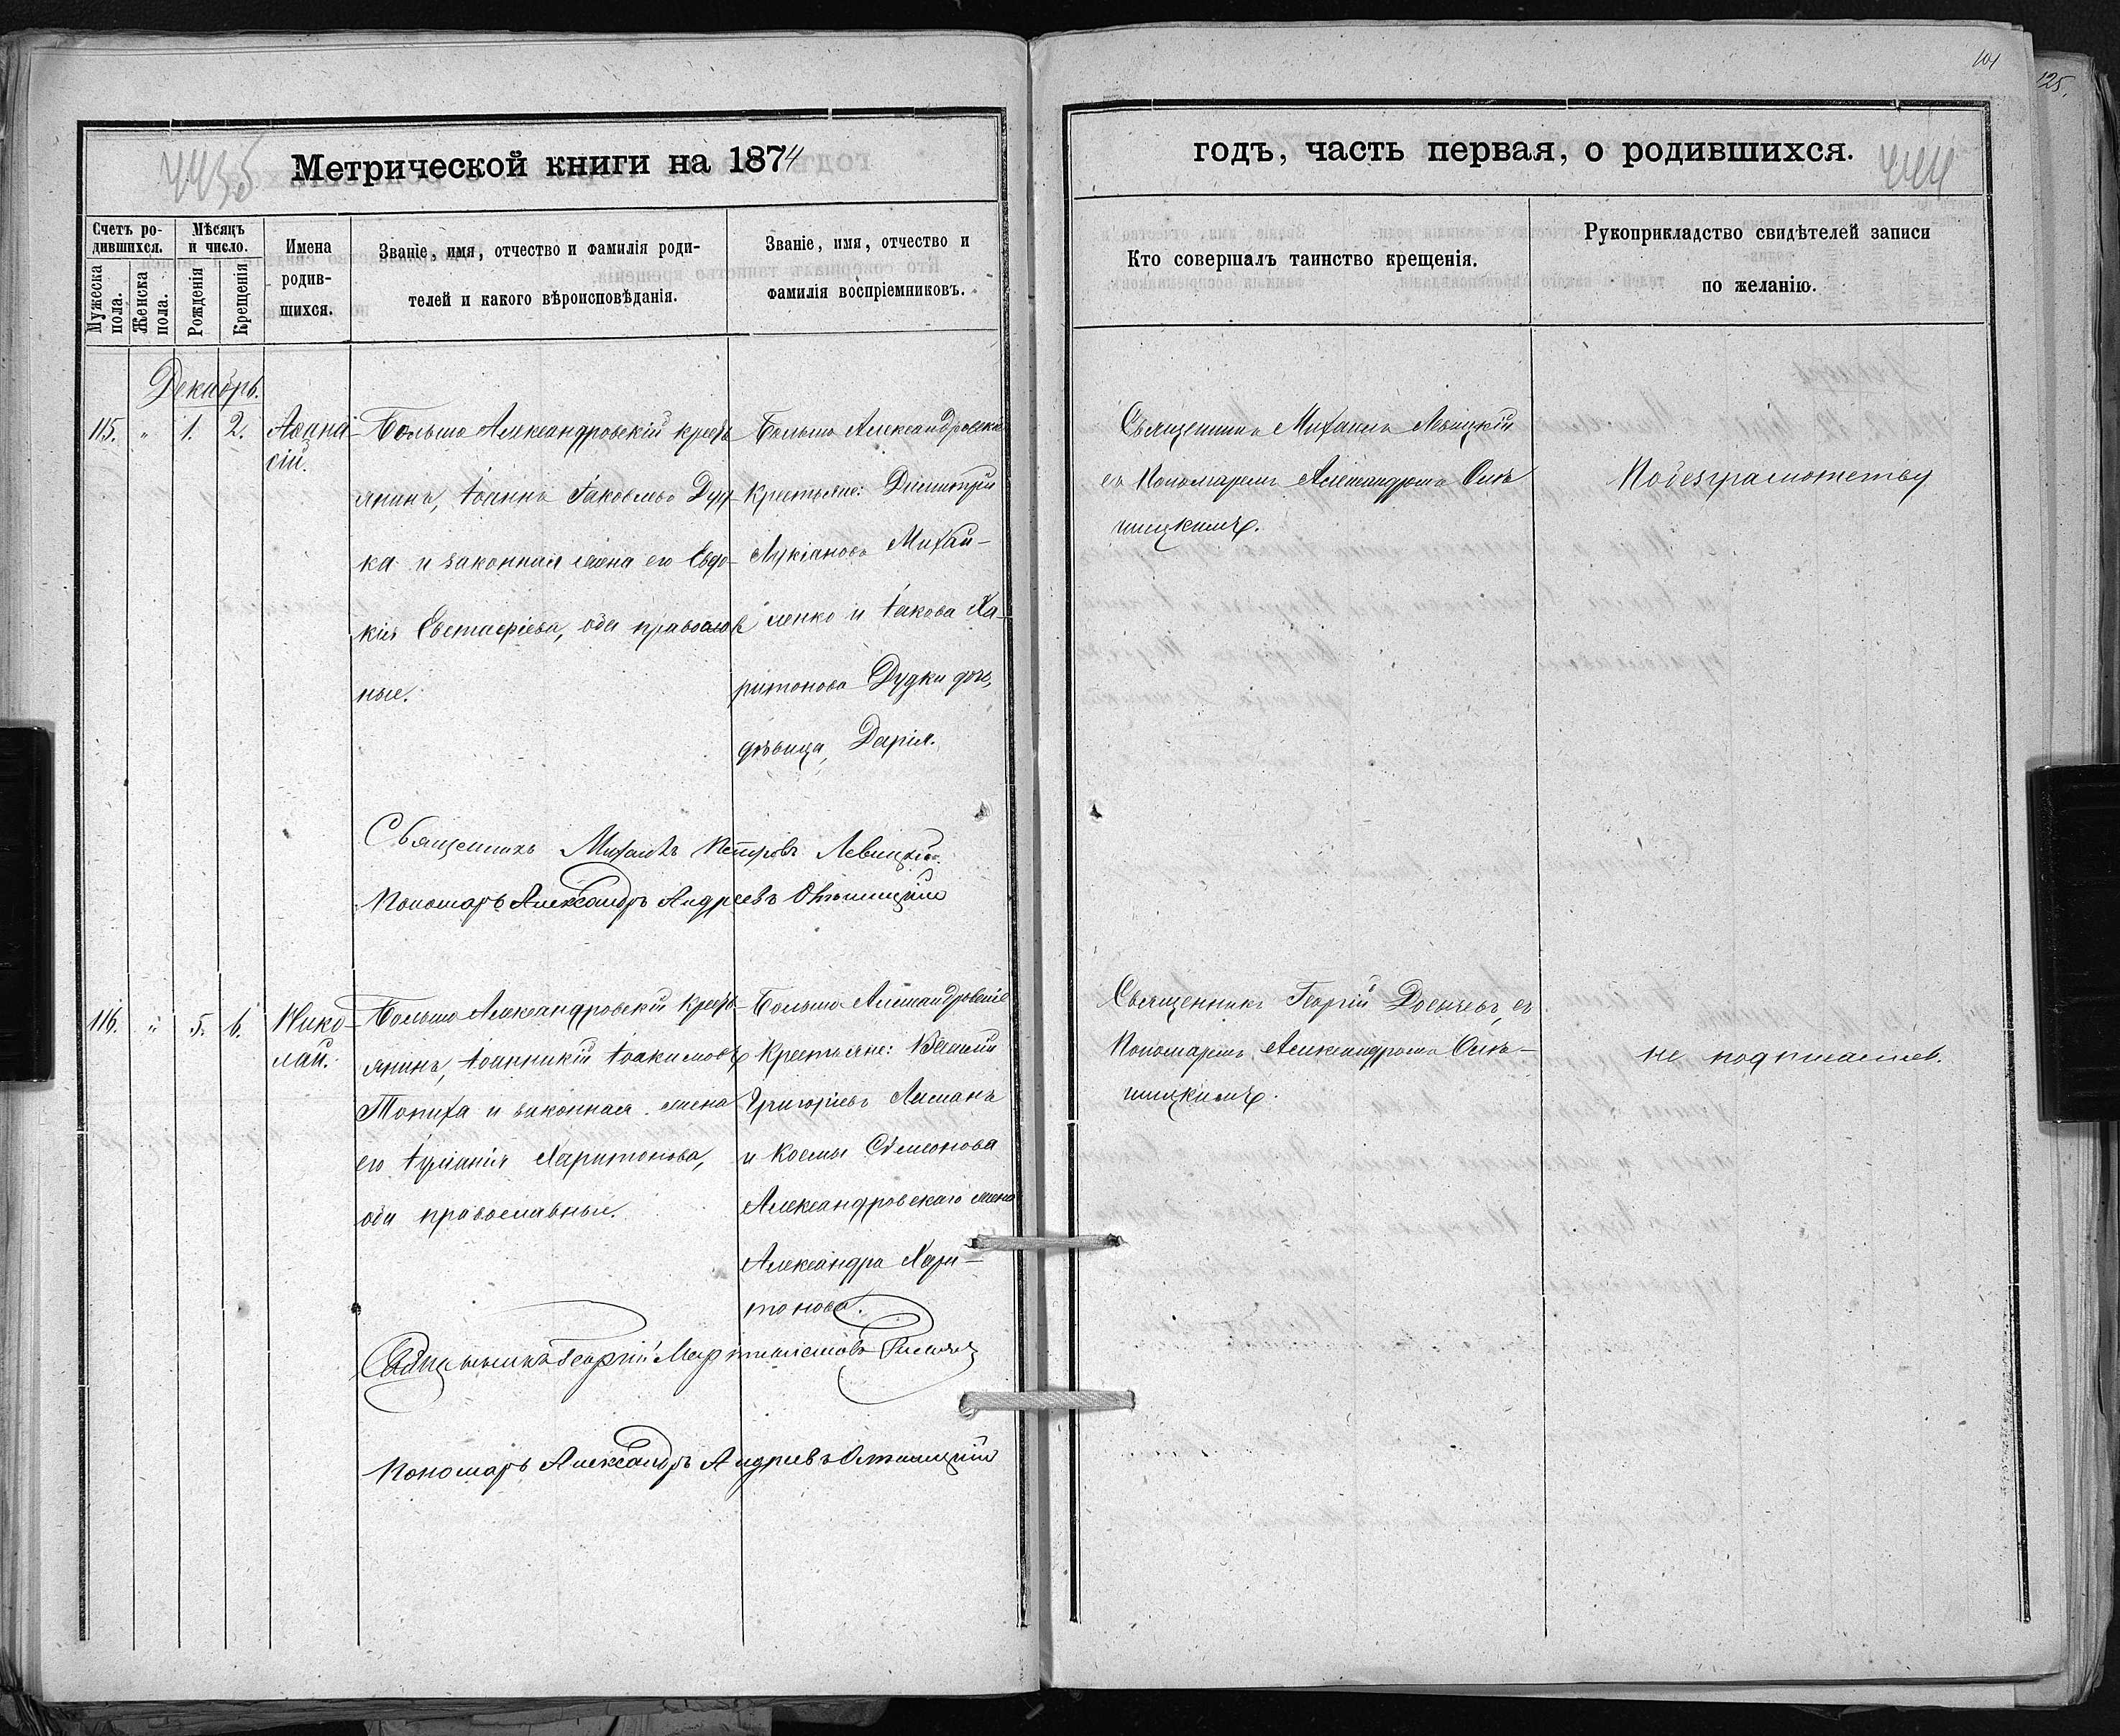 101
125.
Метрической книги на 1874
годъ, часть первая, о родившихся.
444
Счетъ ро-
дившихся.
Мужеска
пола.
Женска
пола.
Мѣсяцъ
и число.
Рожденія
Крещенія
Имена
родив-
шихся.
Званіе, имя, отчество и фамилія роди-
телей и какого вѣроисповѣданія.
Званіе, имя, отчество и
фамилія воспріемниковъ.
Кто совершалъ таинство крещенія.
Рукоприкладство свидѣтелей записи
по желанію.
Декабрь.
115. " 1. 2.
Аѳана-
сій.
Больше Александровскій кресть
янинъ, Іоаннъ Іаковлевъ Дуд
ка и законная жена его Евдо-
кія Евстафіева, оба православ
ные.
Больше Александровскіе
крестьяне: Димитрій
Лукіановъ Михай-
ленко и Іакова Ха-
ритонова Дудки дочь,
дѣвица, Дарія.
Священникъ Михаилъ Левицкій
съ Пономаремъ Александромъ
Священникъ Михаилъ Петровъ Левицкій
Пономарь Александръ Андреевъ
116. " 5. 6.
Нико-
лай.
Больше Александровскій кресть-
янинъ, Іоанникій Іоакимовъ
Топиха и законная жена
его Іуліанія Харитонова,
оба православные.
Больше Александровскіе
крестьяне: Василій
Григорьевъ
и Космы Симеонова
Александровскаго жена
Александра Хари-
тонова.
Священникъ Георгій съ
Пономаремъ Александромъ
не подписался.
Священникъ Георгій
Пономарь Александръ Андреевъ